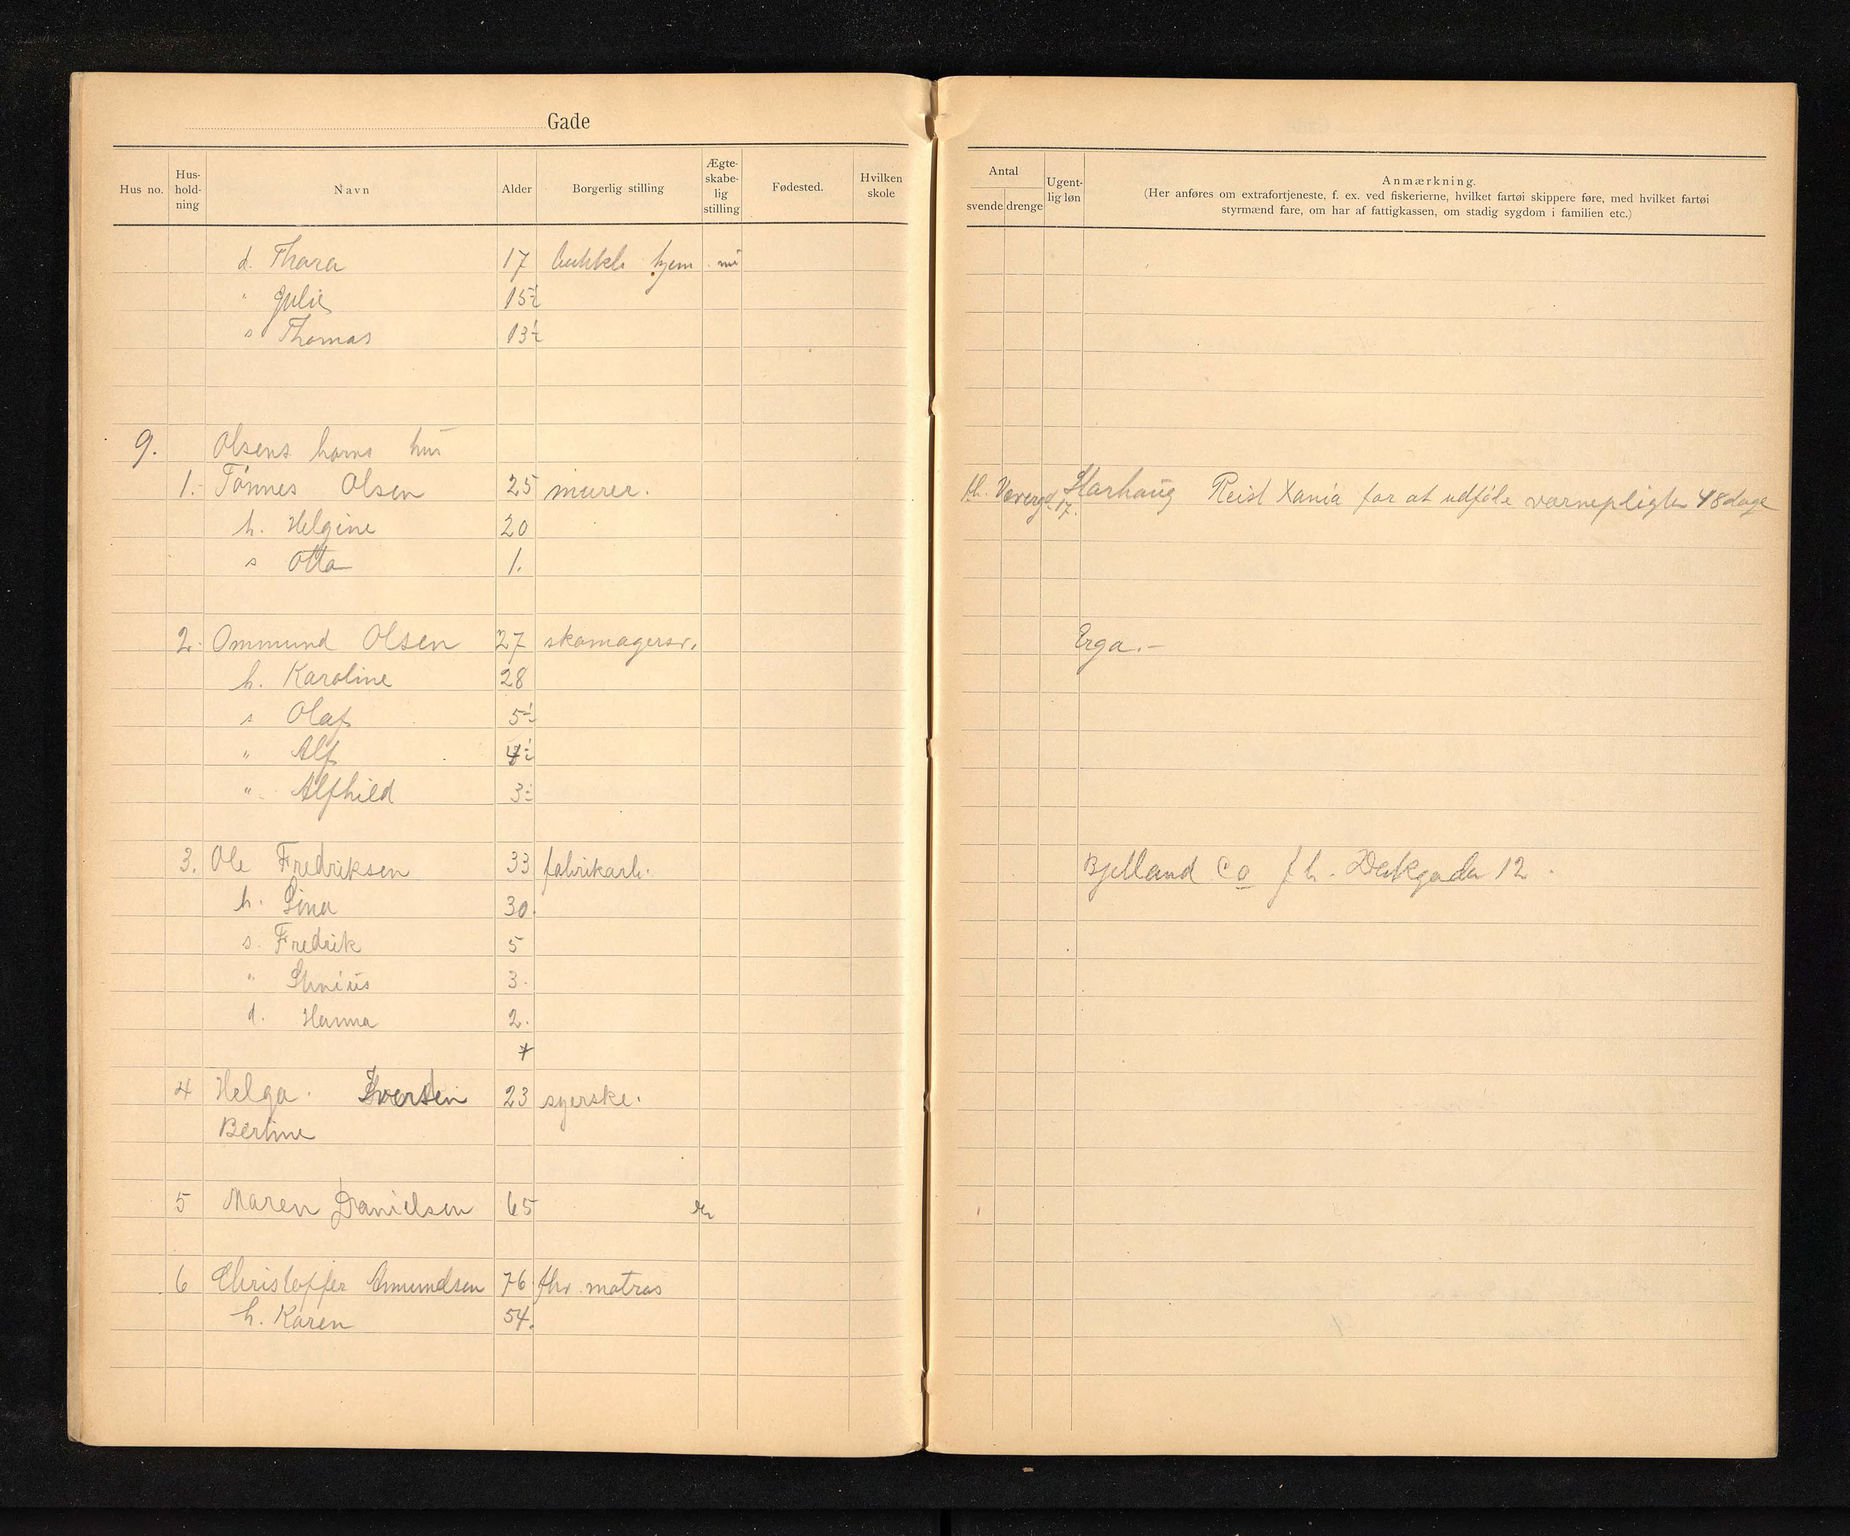 Gade
Hus no. Hus-hold-ning Navn Alder Borgerlig stilling Ægte-skabe-lig stilling Fødested. Hvilken skole
Antal svende drenge Ugent-lig løn Anmærkning.
(Her anføres om extrafortjeneste, f. ex. ved fiskerierne, hvilket fartøi skippere føre, med hvilket fartøi
styrmænd fare, om har af fattigkassen, om stadig sygdom i familien etc.)
d. Thora 17 hjem
" Julie 15½
s Thomas 13½
9. Olsens hus
1. Tönnes Olsen 25 murer. Storhaug Reist Xania for at udföle værnepligten 48 dage
h. Helgine 20
s Otto 1.
2. Ommund Olsen 27 skomagersv. Erga.-
h. Karoline 28
s Olaf 5½
" Alf 4½
" Alfhild 3½
3. Ole Fredriksen 33 fabrikarb. Bjelland Co f b. 12.
h. Sina 30.
s. Fredrik 5
" 3.
d. Hanna 2.
4 Helga. Iversen 23 syerske.
Bertine
5 Maren Danielsen 65
6 Christoffer Amundsen 76. fhv. matros
h. Karen 54.